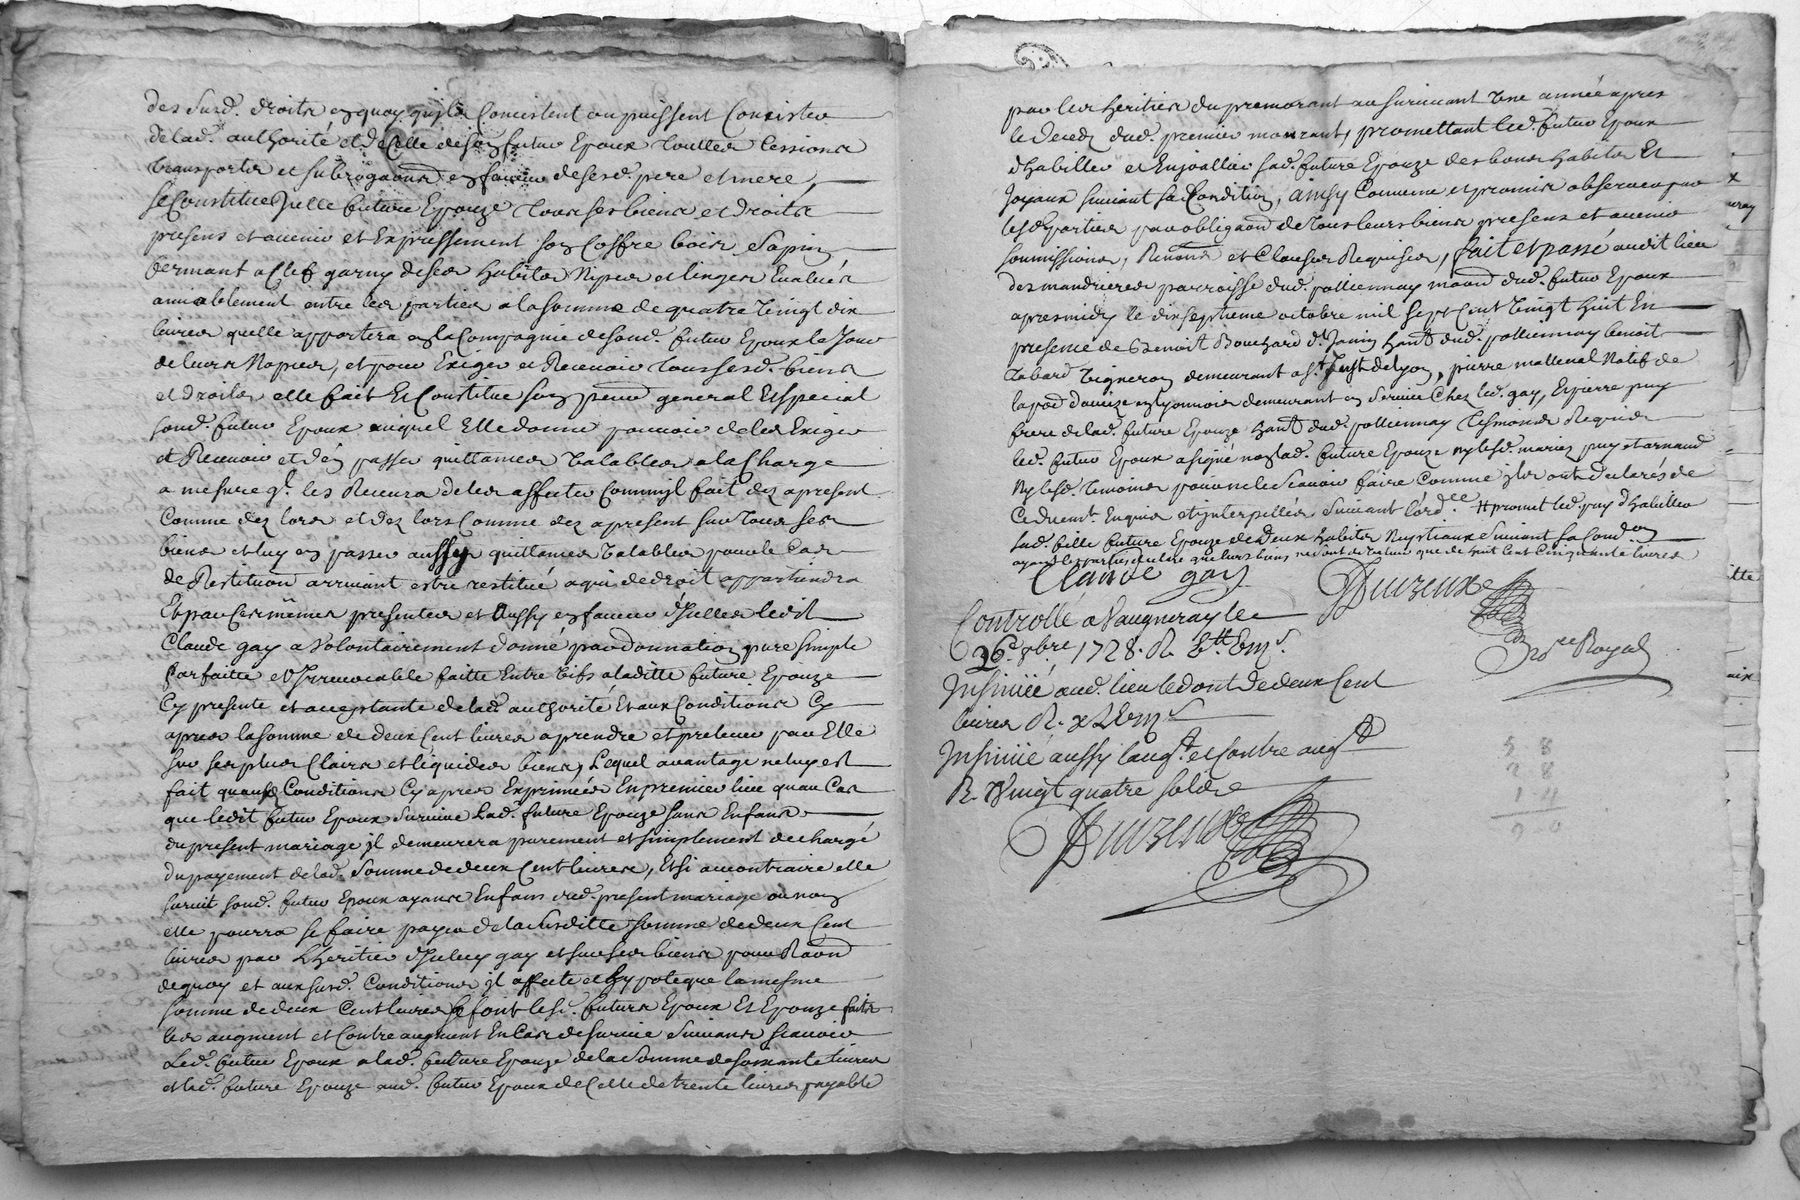 des surd. droits en quoy quils Concistent ou puissent Concister
de lad. authorité et de Celle de son futur Epoux touttes Cessions
transports et subrogaons en faveur de sesd. pere et mere,
se Constitue Jcelle future Epouze tous ses biens et droits
presens et avenir et Expressement son Coffre bois Sapin
fermant a Clef garny de ses habits Nipes et linges Evalués
amiablement entre les parties a la somme de quatre vingt dix
livres quelle apportera en la Compagnie de sond. futur Epoux le Jour
de leurs Nopces, et pour Exiger et Recevoir tous sesd. biens
et droits elle fait Et Constitue son procur general Et special
sond. futur Epoux auquel Elle donne pouvoir de les Exiger
et Recevoir et den passer quittances valables a la Charge
a mesure q'l les Recevra de les assurer Comm'jl fait dez apresent
Comme dez lors et dez lors Comme dez apresent sur tous ses
biens et luy en passer aussy quittances valables pour le Cas
de Restituon arrivant estre restitué a qui de droit appartiendra
Et par Ces mêmes presentes et Aussy en faveur d'Jcelles ledit
Claude gay a volontairement donné par donnation pure simple
parfaitte et Jrrevocable faitte Entre vifs a laditte future Epouze
Cy presente et acceptante de lad. authorité Et aux Conditions Cy
apres la somme de deux Cent livres a prendre et prelever par Elle
sur ses plus Clairs et liquides biens, Lequel avantage ne luy est
fait quaux Conditions Cy apres Exprimées En premier lieu quau Cas
que ledit futur Epoux survive Lad. future Epouze sans Enfans
du present mariage jl demeurera purement et simplement dechargé
du payement de lad. Somme de deux Cent livres, Et si au contraire elle
survit sond. futur Epoux ayans Enfans dud. present mariage ou non
elle pourra se faire payer de la Susditte somme de deux Cent
livres par L'heritier d'Jceluy gay et sur ses biens pour Raison
dequoy et aux surd. Conditions jl affecte et hypoteque la mesme
somme de deux Cent livres se font lesd. futurs Epoux Et Epouze faits
les augment et Contre augment En Cas de survie Suivans scavoir
Led. futur Epoux a lad. future Epouze de la Somme de soixante livres
et lad. future Epouze aud. futur Epoux de Celle de trente livres payable
par les heritiers du premorant au survivant Une année apres
le deceds dud. premier mourant, promettant led. futur Epoux
d'habiller et Enjoaller sad. future Epouze des bons habits Et
Joyaux suivant sa Condition, ainsy Convenu et promis observer par
lesd. parties par obligaon de tous leurs biens presens et avenir
soumissions, Renons et Clauses Requises, fait et passé audit lieu
des mandrieres parroisse dud. pollionnay maon dud. futur Epoux
apres midy le dix septieme octobre mil sept Cent vingt huit En
presence de Benoit Bouchard d. Janin habt. dud. pollionnay benoit
vigneron demeurant a St. Just de lyon, pierre mallenal Natif de
en lyonnois demeurant en service Chez led. gay, Et pierre puy
frere de lad. future Epouze habt. dud. pollionnay tesmoins Requis
led. futur Epoux a signé non lad. future Epouze ny lesd. mariez puy et arnaud
Ny lesd. temoins pour ne le Scavoir faire Comme jls ont declarés de
Ce duemt. Enquis et jnterpellés Suivant l'ordce. # promet led. puy d'habiller
sad. fille future Epouze de deux habits Nuptiaux Suivant sa Condon
ayant les parties declaré que leurs biens ne sont de valeur que de huit Cent Cinquante livres
Claude gay
Duvzeux
Controllé a Vaugneray le
26e. 8bre 1728. R.
nore. Royal
Jnsinüé aud. lieu led ont de deux Cent
livres R.
Jnsinüé aussy laugt. et Contre augt.
R. vingt quatre Solds
Duvzeux